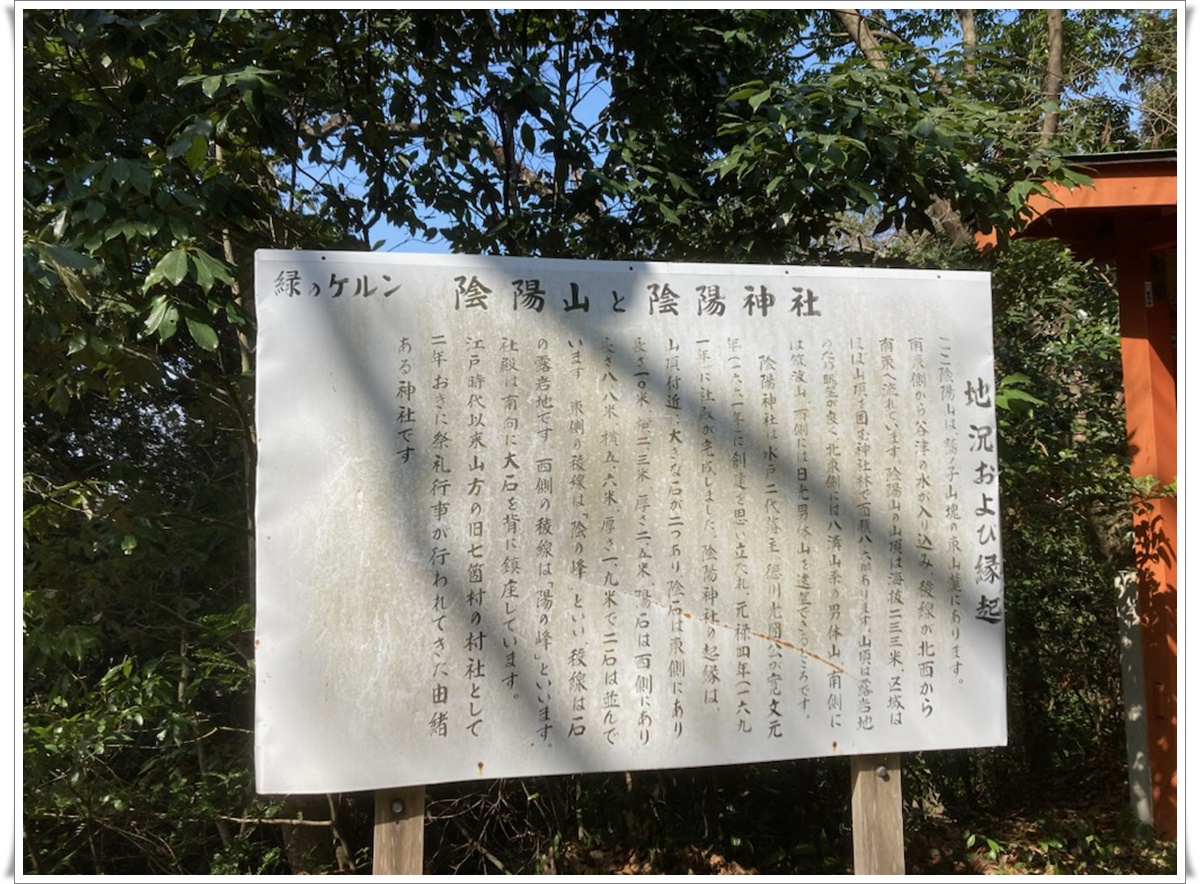 緑のケルン 陰陽山と陰陽神社
地況および縁起
ここ陰陽山は、鷲子山塊の東山麓にあります。
南東側から谷津の水が入り込み、稜線が北西から
南東へ流れています。陰陽山の山頂は海抜二三三米、区域は
ほぼ山頂を囲む神社林で面積八、六haあります。山頂は露岩地
のため眺望が良く、北東側には八溝山系の男体山、南側に
は筑波山、西側には日光男体山を遠望できるところです。
陰陽神社は、水戸二代藩主、徳川光圀公が寛文元
年(一六六一年)に創建を思い立たれ、元禄四年(一六九
一年)に社殿が完成しました。陰陽神社の起縁は、
山頂付近に大きな石が二つあり、陰石は東側にあり
長さ一〇米、幅二、三米、厚さ二、五米、陽石は西側にあり
長さ八、八米、横五、六米、厚さ一、九米で二石は並んで
います。東側の稜線は「陰の峰」といい、稜線は石
の露岩地です。西側の稜線は「陽の峰」といいます。
社殿は南向に大石を背に鎮座しています。
江戸時代以来山方の旧七箇村の村社として
二年おきに祭礼行事が行われてきた由緒
ある神社です